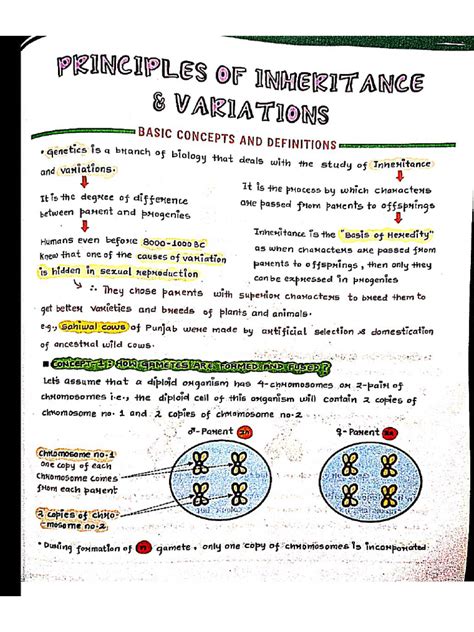 PRINCIPLES OF INHERITANCE
& VARIATIONS
BASIC CONCEPTS AND DEFINITIONS
• Genetics is a branch of biology that deals with the study of Inheritance
and variations.
It is the degree of difference
between parent and progenies
Humans even before 8000-1000 BC
knew that one of the causes of variation
is hidden in sexual reproduction
It is the process by which characters
are passed from parents to offsprings
Inheritance is the "Basis of Heredity"
as when characters are passed from
parents to offsprings, then only they
can be expressed in progenies
∴ They chose parents with superior characters to breed them to
get better varieties and breeds of plants and animals.
e.g., Sahiwal cows of Punjab were made by artificial selection & domestication
of ancestral wild cows.
■ CONCEPT 1: HOW GAMETES ARE FORMED AND FUSED?
Lets assume that a diploid organism has 4-chromosomes or 2-pair of
chromosomes i.e., the diploid cell of this organism will contain 2 copies of
chromosome no. 1 and 2 copies of chromosome no. 2
♂-Parent 2n
♀-Parent 2n
Chromosome no. 1
one copy of each
chromosome comes
from each parent
2 copies of chro-
mosome no. 2
• During formation of n gamete, only one copy of chromosomes is incorporated